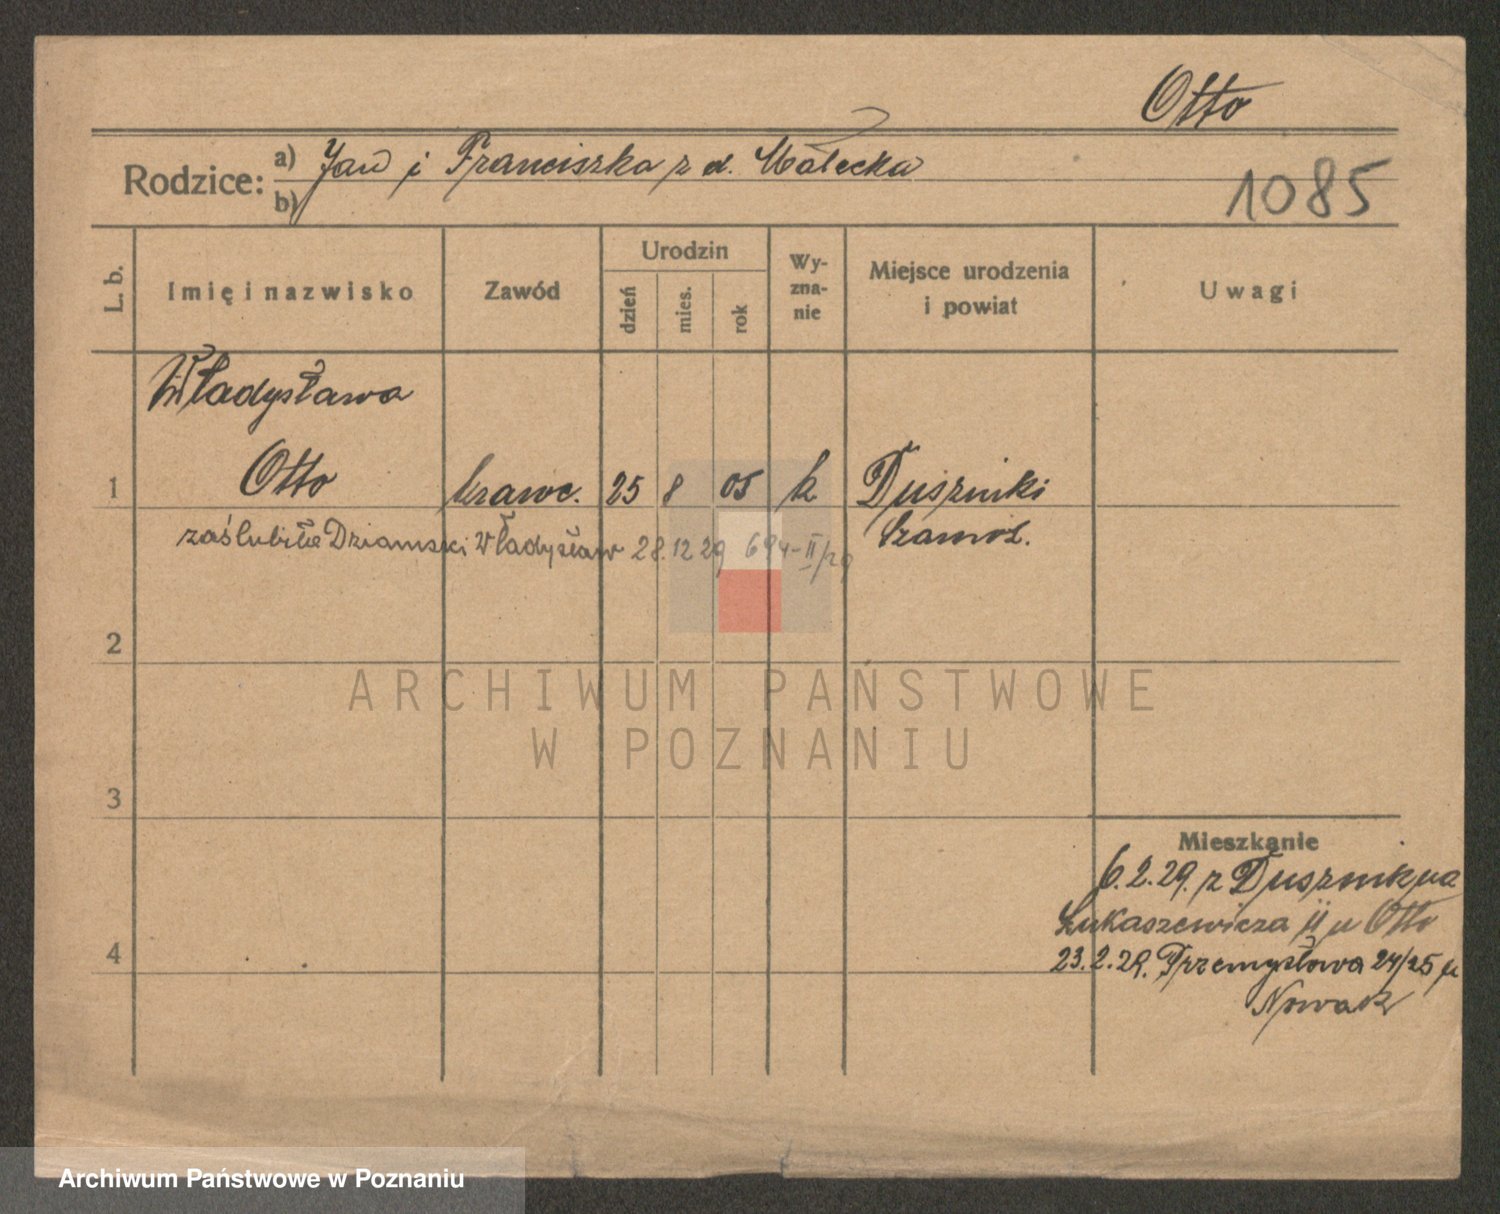 Otto
Rodzice: a) Jan i Franciszka z d. Małecka
b)
1085
L. b.
Imię i nazwisko
Zawód
Urodzin
dzień
mies.
rok
Wy-
zna-
nie
Miejsce urodzenia
i powiat
Uwagi
Władysława
1 Otto krawc. 25 8 05 k Duszniki
zaślubiła Dziamski Władysław 28.12 29 694-II/29
Szamot.
2
3
ARCHIWUM PAŃSTWOWE
W POZNANIU
Mieszkanie
6.2.29. z Dusznik na
Łukaszewicza 11 u Otto
4
23.2.29. Przemysłowa 24/25 u
Nowak
Archiwum Państwowe w Poznaniu